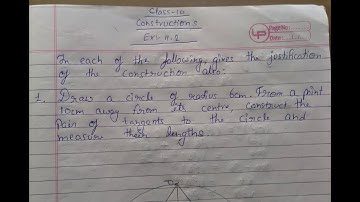 Class-10
Constructions
Ex:-11.2
In each of the following, gives the justification
of the construction also:-
1. Draw a circle of radius 6cm. From a point
10cm away from its centre, construct the
Pair of tangents to the circle and
measure their lengths.
Page No.
Date